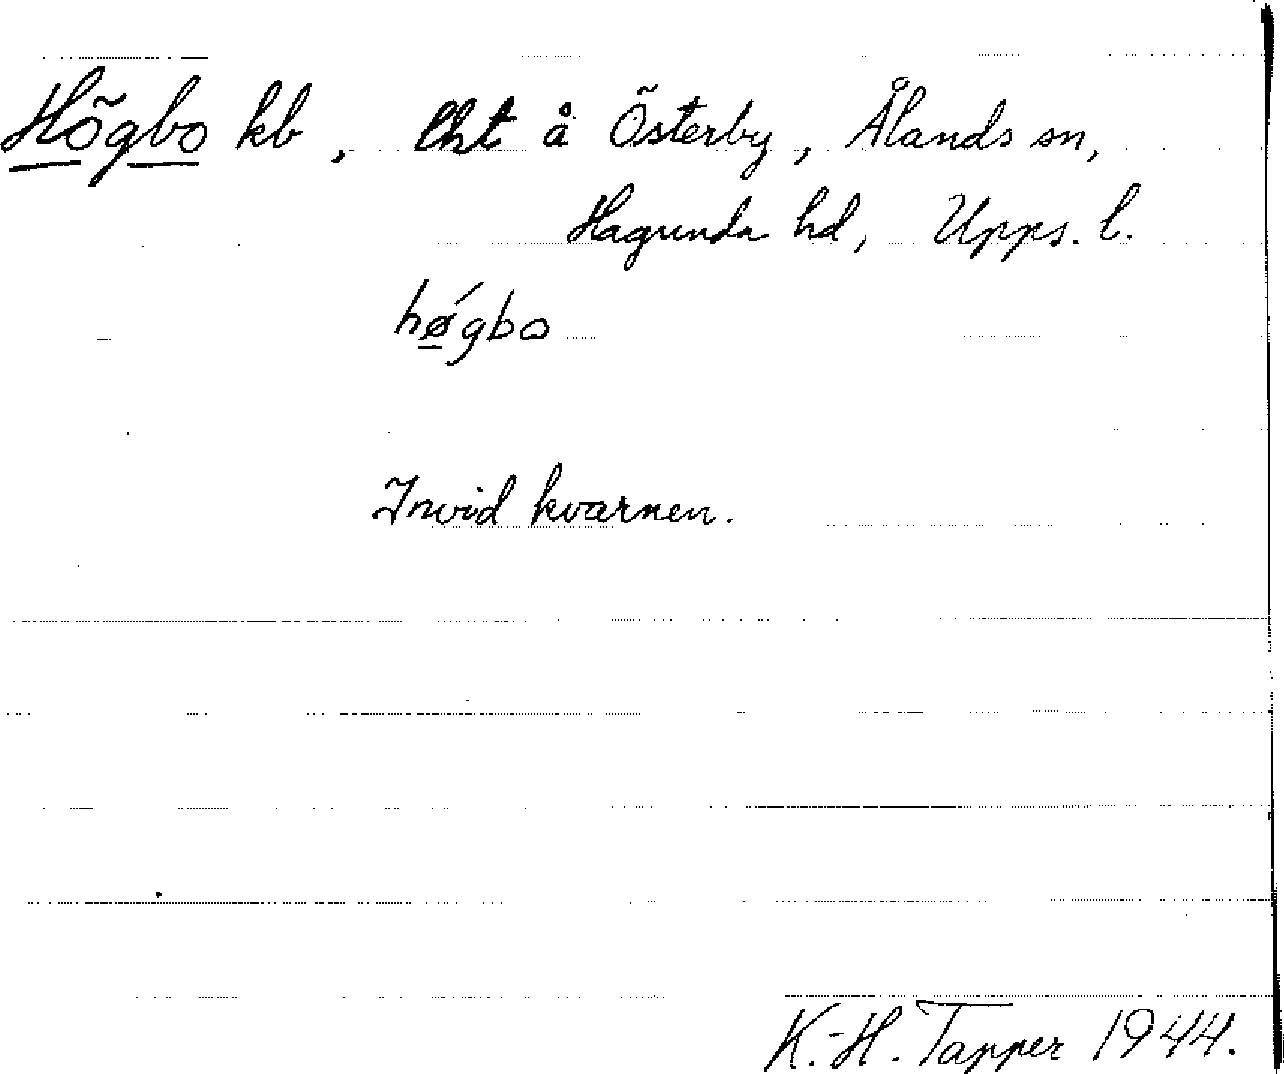 Högbo kb, lht å Österby, Ålands sn,
Hagunda hd, Upps. l.
hǿgbo
Invid kvarnen.
K.-H. Tapper 1944.